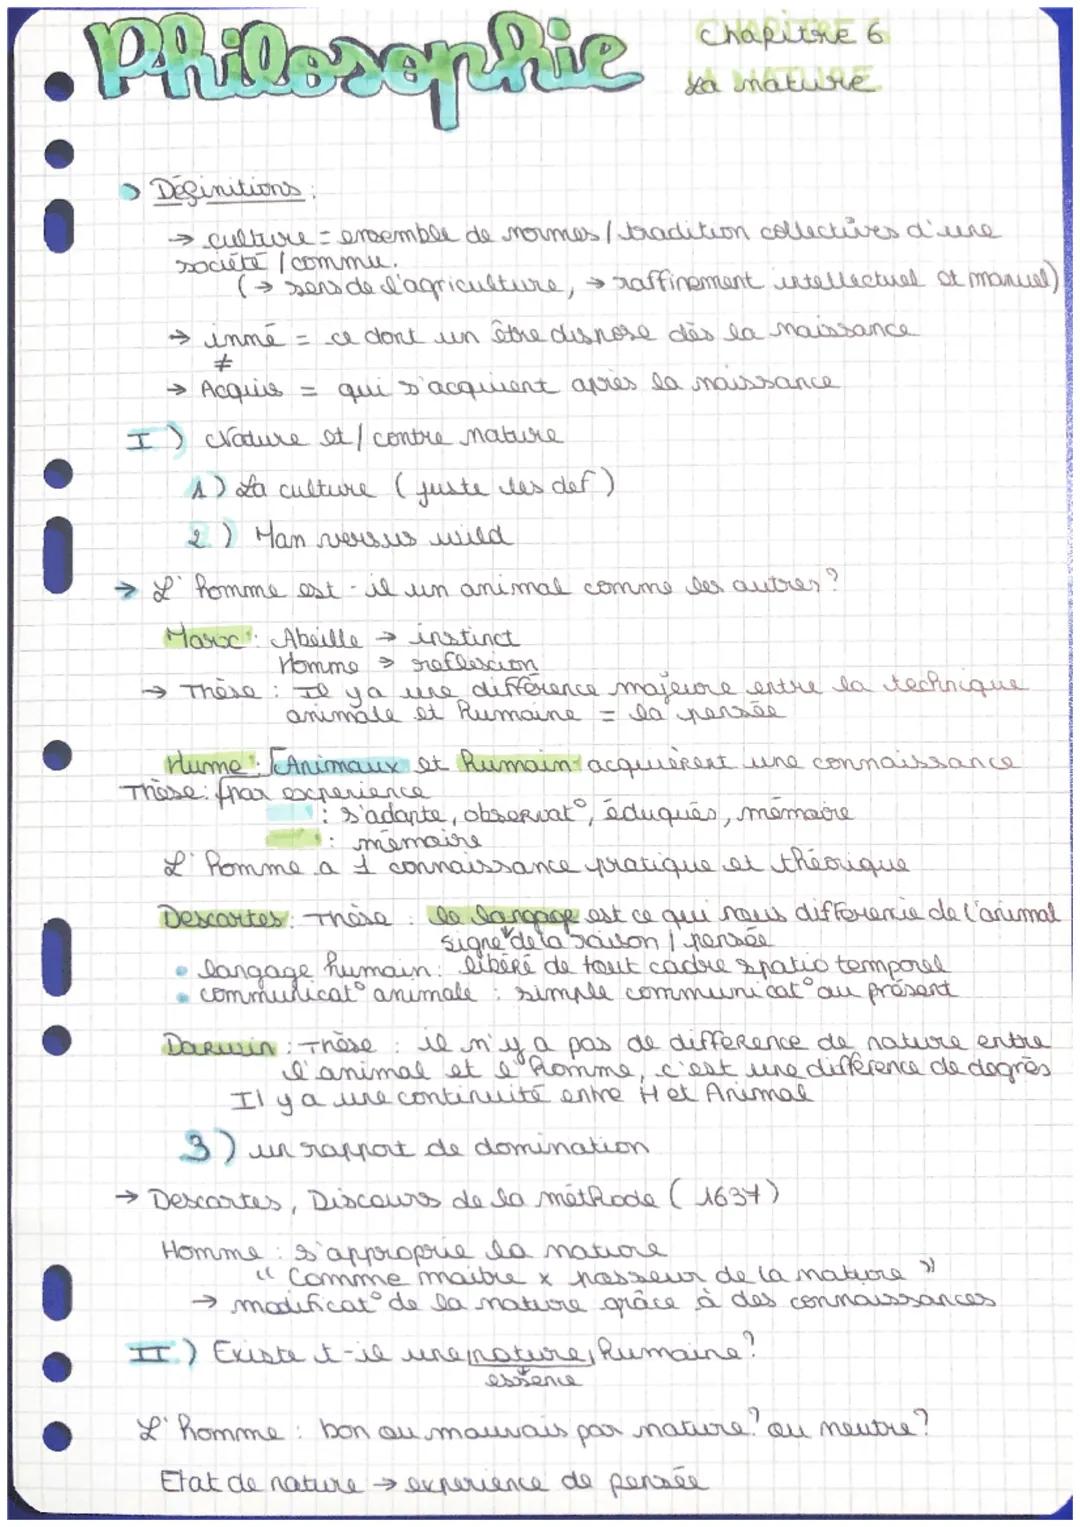 Philosophie
Chapitre 6
La nature
Définitions :
→ culture = ensemble de normes / tradition collectives d'une
société / commu.
(→ sens de l'agriculture, → raffinement intellectuel et manuel)
→ inné = ce dont un être dispose dès la naissance
≠
→ Acquis = qui s'acquient après la naissance
I ) Nature et / contre nature
1 ) La culture ( juste les def )
2 ) Man versus wild
→ L'homme est-il un animal comme les autres ?
Marx : Abeille → instinct
Homme → reflexion
→ Thèse : Il y a une différence majeure entre la technique
animale et humaine = la pensée
Hume : [Animaux et humain acquièrent une connaissance
Thèse : [par experience
: s'adapte, observat°, éduqués, mémoire
: mémoire
L'homme a 1 connaissance pratique et théorique
Descartes : Thèse : le langage est ce qui nous differencie de l'animal
signe de la raison / pensée
• langage humain : libéré de tout cadre spatio temporel
• communicat° animale : simple communicat° au présent
Darwin : Thèse : il n'y a pas de différence de nature entre
l'animal et l'homme, c'est une différence de degrés
Il y a une continuité entre H et Animal
3 ) un rapport de domination
→ Descartes, Discours de la méthode ( 1637 )
Homme : s'approprie la nature
" Comme maitre x posseur de la nature "
→ modificat° de la nature grâce à des connaissances
II ) Existe t-il une nature humaine ?
essence
L'homme : bon ou mauvais par nature ? ou neutre ?
Etat de nature → experience de pensée